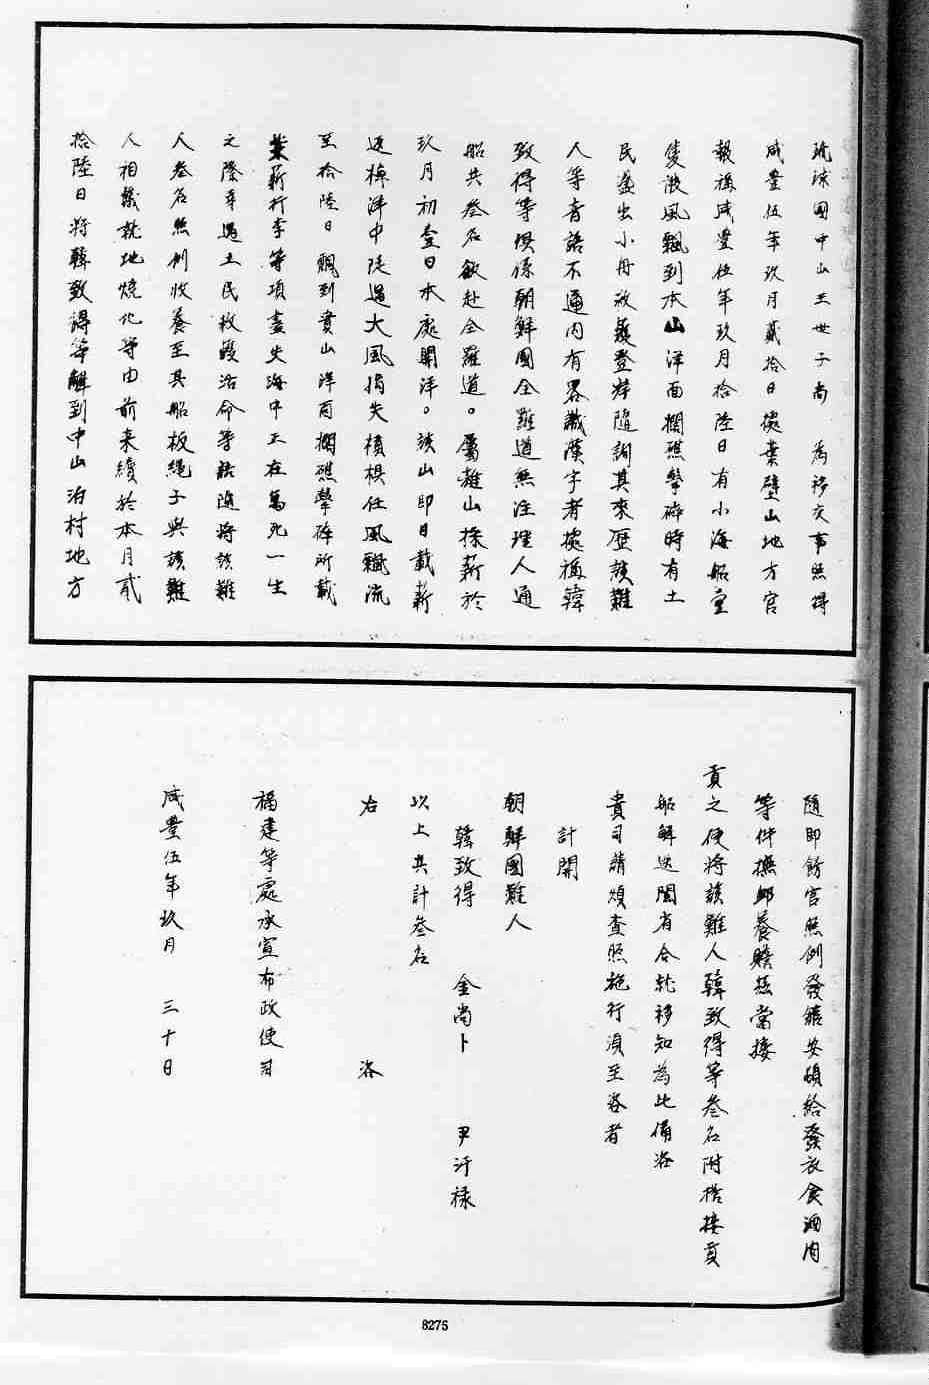 琉球國中山王世子尚　為移交事照得
咸豐伍年玖月貳拾日據葉壁山地方官
報稱咸豐伍年玖月拾陸日有小海船壹
隻被風飄到本山洋面擱礁擊碎時有土
民盪出小舟救護登岸隨詢其來歷該難
人等言語不通內有畧識漢字者據稱韓
致得等俱係朝鮮國全羅道無注理人通
船共叁名欲赴全羅道。屬雄山採薪於
玖月初壹日本處開洋。該山即日載薪
返棹洋中陡遇大風損失檣棋任風飄流
至拾陸日飄到貴山洋面擱礁擊碎所載
柴薪行李等項盡失海中正在萬死一生
之際幸遇土民救援活命等語隨將該難
人叁名照例收養至其船板繩子與該難
人相議就地燒化等由前來續於本月貳
拾陸日將韓致得等解到中山泊村地方
隨即飭官照例發館安頓給發衣食酒肉
等件撫卹養贍茲當接
貢之便將該難人韓致得等叁名附搭接貢
船解送閩省合就移知為此備咨
貴司請煩查照施行須至咨者
計開
朝鮮國難人
韓致得　金尚卜　尹汗祿
以上共計叁名
右　咨
福建等處承宣布政使司
咸豐伍年玖月　三十日
8275